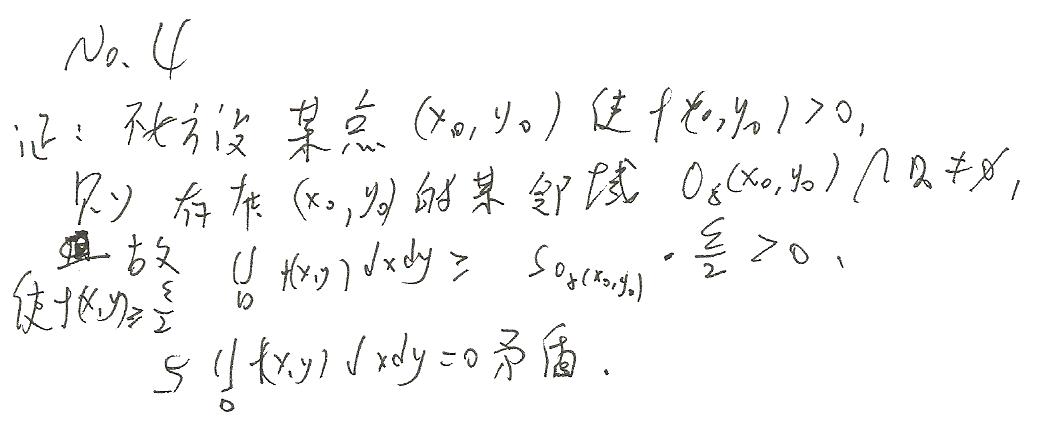 No. 4
证: 不妨设某点 (x₀, y₀) 使 f(x₀, y₀) > 0,
则存在 (x₀, y₀) 的某邻域 O_δ(x₀, y₀) ∩ D ≠ ∅,
故 ∬_D f(x,y) dxdy ≥ S_{O_δ(x₀,y₀)} · ε/2 > 0,
使 f(x,y) ≥ ε/2
与 ∬_D f(x,y) dxdy = 0 矛盾.